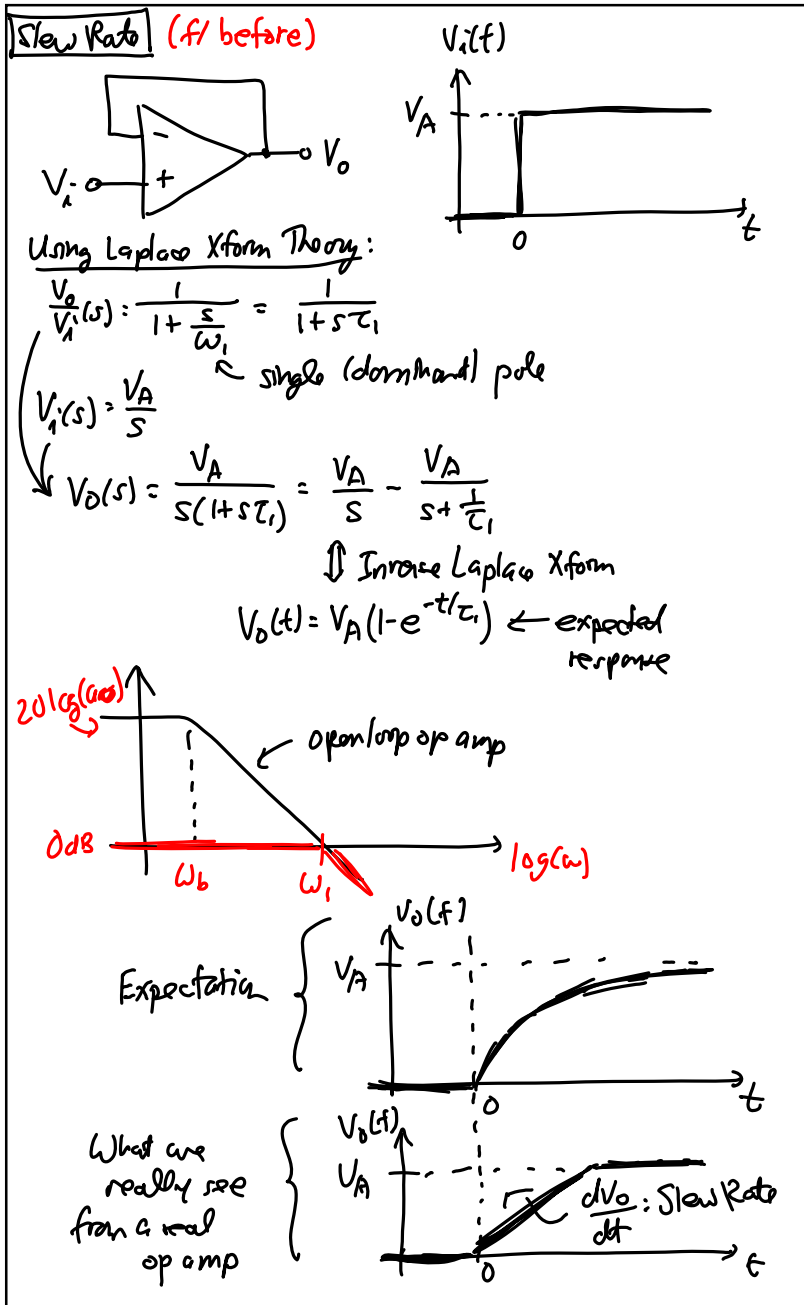 Slew Rate (f/ before)
Vi(t)
VA
0
t
Vi
-
+
Vo
Using Laplace Xform Theory:
Vo/Vi(s) = 1/(1 + s/ω1) = 1/(1+sτ1)
single (dominant) pole
Vi(s) = VA/s
Vo(s) = VA/(s(1+sτ1)) = VA/s - VA/(s+1/τ1)
⇕ Inverse Laplace Xform
Vo(t) = VA(1-e^-t/τ1) ← expected
response
20log(a0)
open loop op amp
0dB
ωb
ω1
log(ω)
Vo(t)
Expectation
VA
0
t
Vo(t)
What are
really see
from a real
op amp
VA
dVo/dt : Slew Rate
0
t